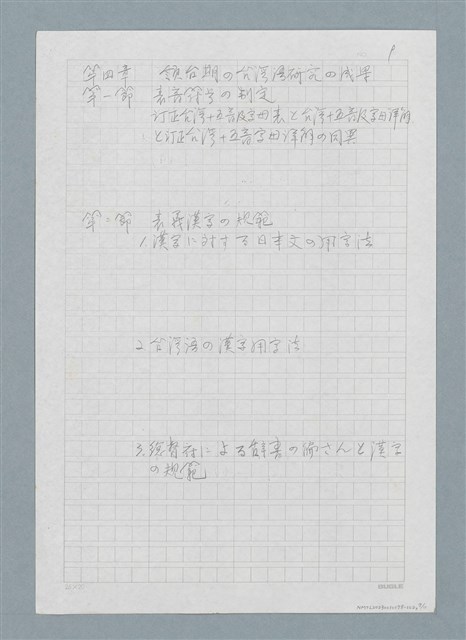 第四章 領台期の台湾語研究の成果
第一節 表音符号の制定
訂正台湾十五音及字母表と台湾十五音及字母詳解
と訂正台湾十五音字母詳解の同異
第二節 表義漢字の規範
1. 漢字に対する日本文の用字法
2. 台湾語の漢字用字法
3. 総督府による辞書の編さんと漢字
の規範
20×20